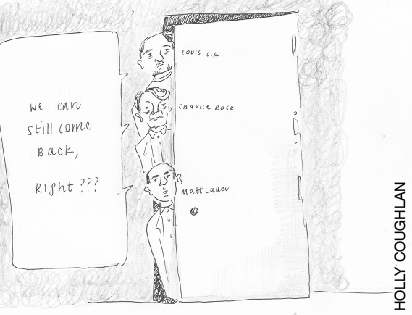 We can
still come
Back,
Right???
Louis C.K
Charlie Rose
Matt Lauer
HOLLY COUGHLAN